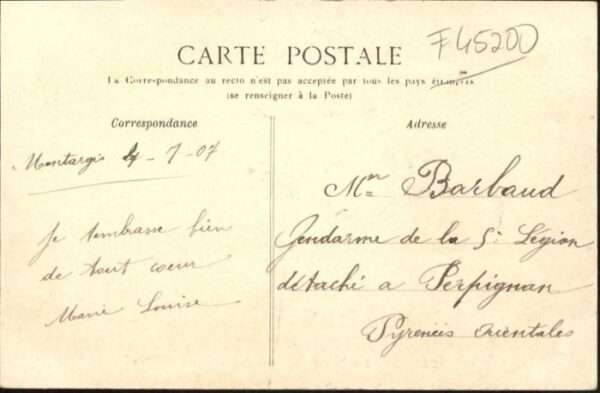 F45200
CARTE POSTALE
La Correspondance au recto n'est pas acceptée par tous les pays étrangers
(se renseigner à la Poste)
Correspondance
Adresse
Montargis 4 - 7 - 07
Je t'embrasse bien
de tout coeur
Marie Louise
Mr Barbaud
Gendarme de la 5e Légion
détaché a Perpignan
Pyrenéés orientales